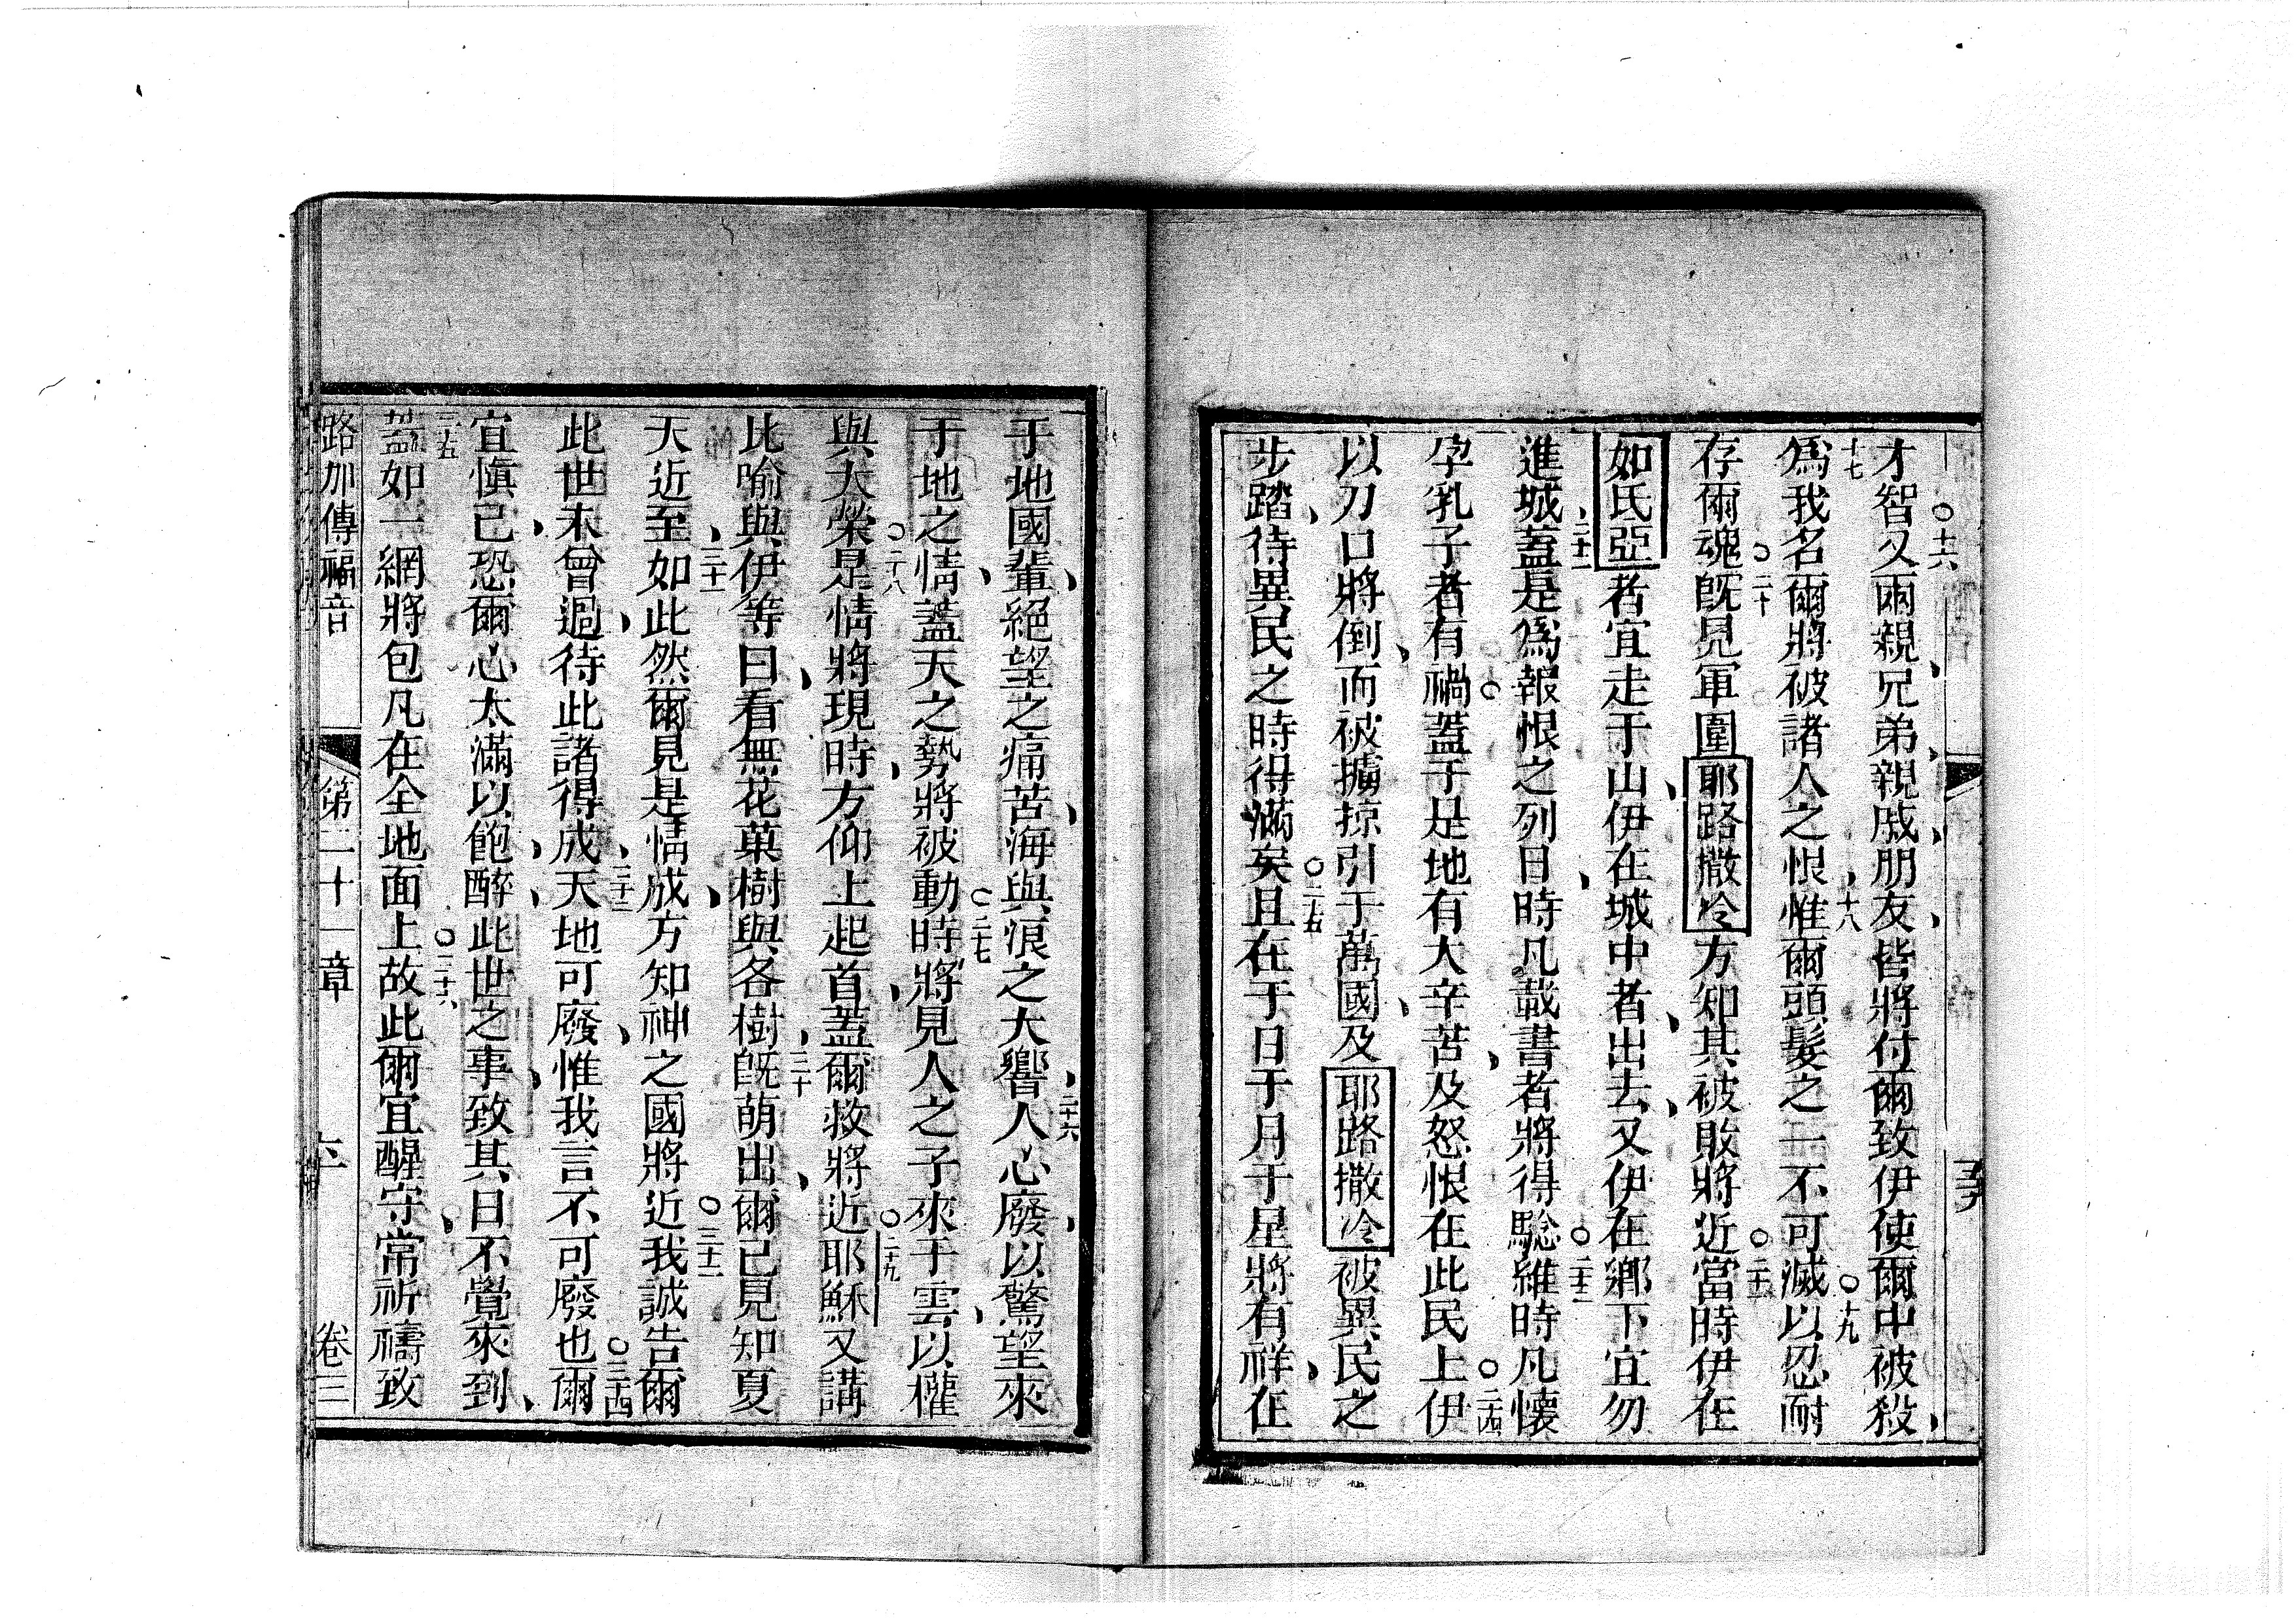 才智○十六又兩親、兄弟、親戚、朋友、皆將付爾致伊使爾中被殺、
十七爲我名爾將被諸人之恨、十八惟爾頭髮之一不可滅○十九以忍耐
存爾魂○二十既見軍圍耶路撒冷方知其被敗將近○二十一當時伊在
如氏亞者宜走于山、伊在城中者、出去、又伊在鄉下宜勿
進城、二十二蓋是爲報恨之列日、時凡載書者將得騐○二十三維時凡懷
孕乳子者有禍○蓋于是地有大辛苦、及怒恨在此民上○二十四伊
以刀口將倒、而被擄掠引于萬國、及耶路撒冷被異民之
步踏、待異民之時得滿矣○二十五且在于日于月于星將有祥、在
于地國輩、絕望之痛苦、海與浪之大響、二十六人心廢、以驚望來
于地之情、蓋天之勢將被動○二十七時將見人之子來于雲、以權
與大榮○二十八是情將現時、方仰上起首、蓋爾救將近○二十九耶穌又講
比喻與伊等曰、看無花菓樹與各樹、三十既萌出、爾已見知夏
天近至、三十一如此然爾見是情成、方知神之國將近○三十二我誠告爾
此世未曾過、待此諸得成、三十三天地可廢、惟我言不可廢也○三十四爾
宜慎己、恐爾心太滿以飽、醉、此世之事、致其日不覺來到、
三十五蓋如一網將包凡在全地面上○三十六故此爾宜醒守、常祈禱致
路加傳福音 第二十一章 卷三